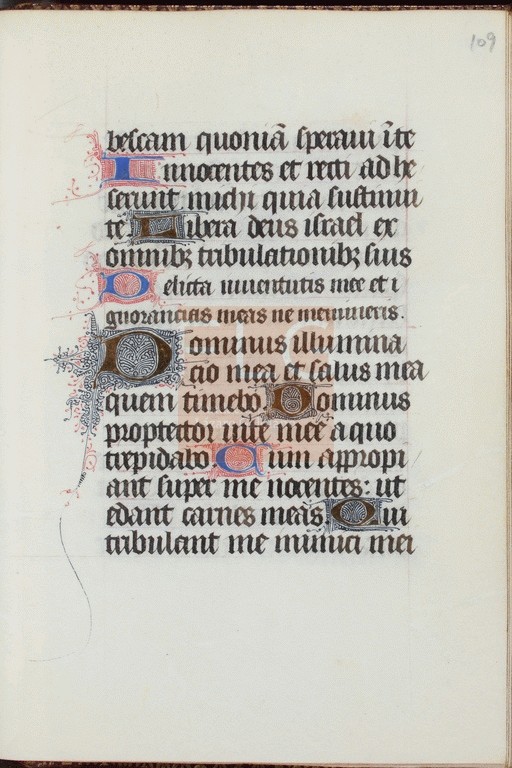 109
bescam quoniā speraui īte
Innocentes et recti adhe
serunt michi quia sustinui
te Libera deus israel ex
omnibꝫ tribulationibꝫ suis
Delicta iuuentutis mee et i
gnorancias meas ne memineris.
Dominus illumina
cio mea et salus mea
quem timebo Dominus
protector uite mee a quo
trepidabo Dum appropi
ant super me nocentes: ut
edant carnes meas Qui
tribulant me inimici mei